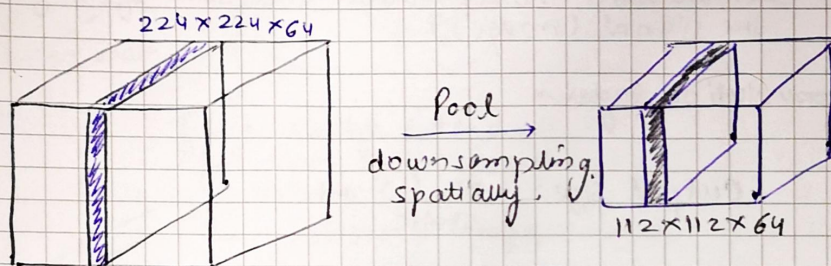 224×224×64
Pool
downsampling.
spatially.
112×112×64